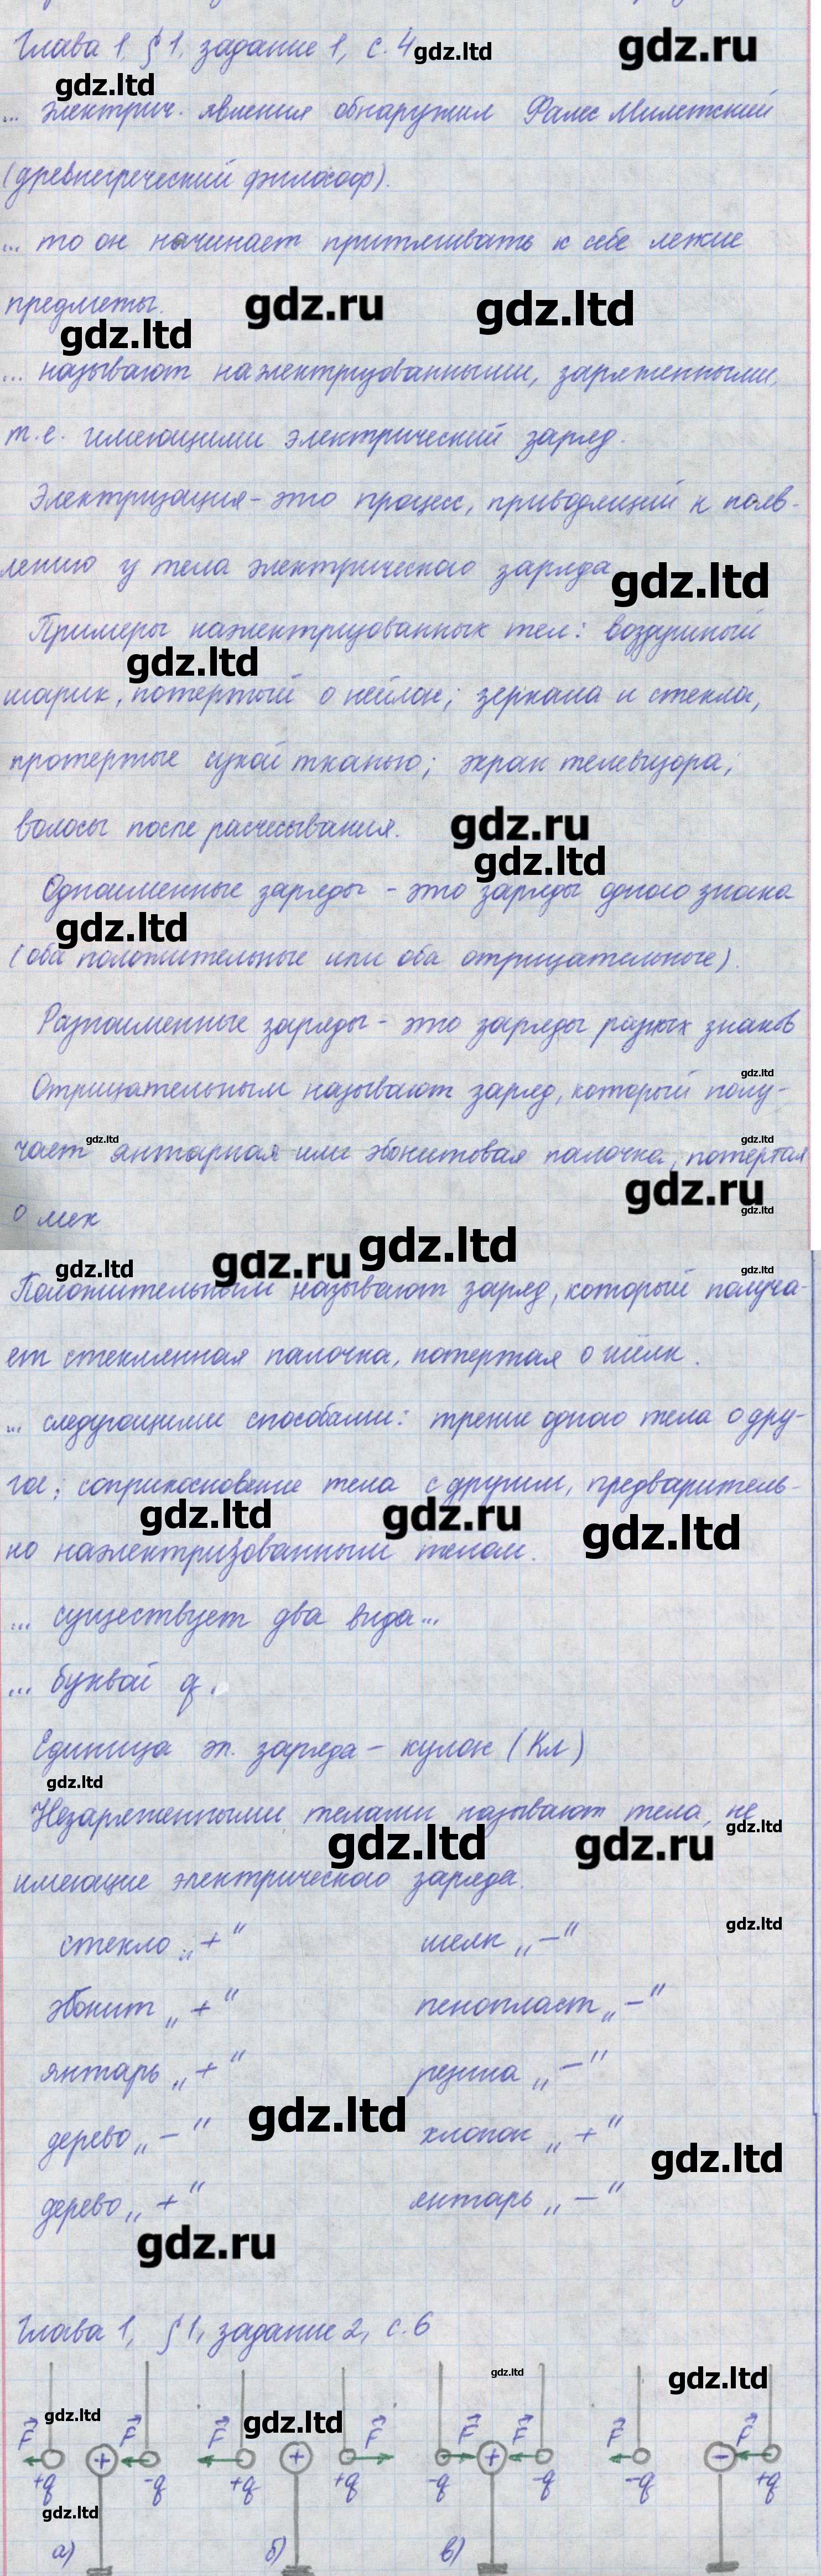 Глава 1, § 1, задание 1, с. 4 gdz.ltd gdz.ru
gdz.ltd
... электрич. явления обнаружил Фалес Милетский
(древнегреческий философ).
... то он начинает притягивать к себе легкие
предметы. gdz.ru gdz.ltd
gdz.ltd
... называют наэлектризованными, заряженными,
т.е. имеющими электрический заряд.
Электризация - это процесс, приводящий к появ-
лению у тела электрического заряда gdz.ltd
Примеры наэлектризованных тел: воздушный
gdz.ltd
шарик, потертый о нейлон; зеркала и стекла,
протертые сухой тканью; экран телевизора;
волосы после расчесывания. gdz.ru
gdz.ltd
Одноименные заряды - это заряды одного знака
gdz.ltd
(оба положительные или оба отрицательные).
Разноименные заряды - это заряды разных знаков
gdz.ltd
Отрицательным называют заряд, который полу-
gdz.ltd gdz.ltd
чает янтарная или эбонитовая палочка, потертая
gdz.ru
gdz.ltd
о мех
gdz.ltd gdz.ru gdz.ltd gdz.ltd
Положительным называют заряд, который получа-
ет стеклянная палочка, потертая о шёлк.
... следующими способами: трение одного тела о дру-
гое; соприкосновение тела с другим, предваритель-
gdz.ltd gdz.ru gdz.ltd
но наэлектризованным телом.
... существует два вида...
... буквой q.
Единица эл. заряда - кулон (Кл)
gdz.ltd
Незаряженными телами называют тела, не
gdz.ltd gdz.ru gdz.ltd
имеющие электрического заряда.
gdz.ltd
стекло „+“ шелк „−“
эбонит „+“ пенопласт „−“
янтарь „+“ резина „−“
gdz.ltd
дерево „−“ хлопок „+“
gdz.ltd
дерево „+“ янтарь „−“
gdz.ru
Глава 1, § 1, задание 2, с. 6
gdz.ltd gdz.ltd
gdz.ltd gdz.ltd
F F F F F F F F
+ + + −
+q -q +q +q -q -q -q +q
gdz.ltd
а) б) в)